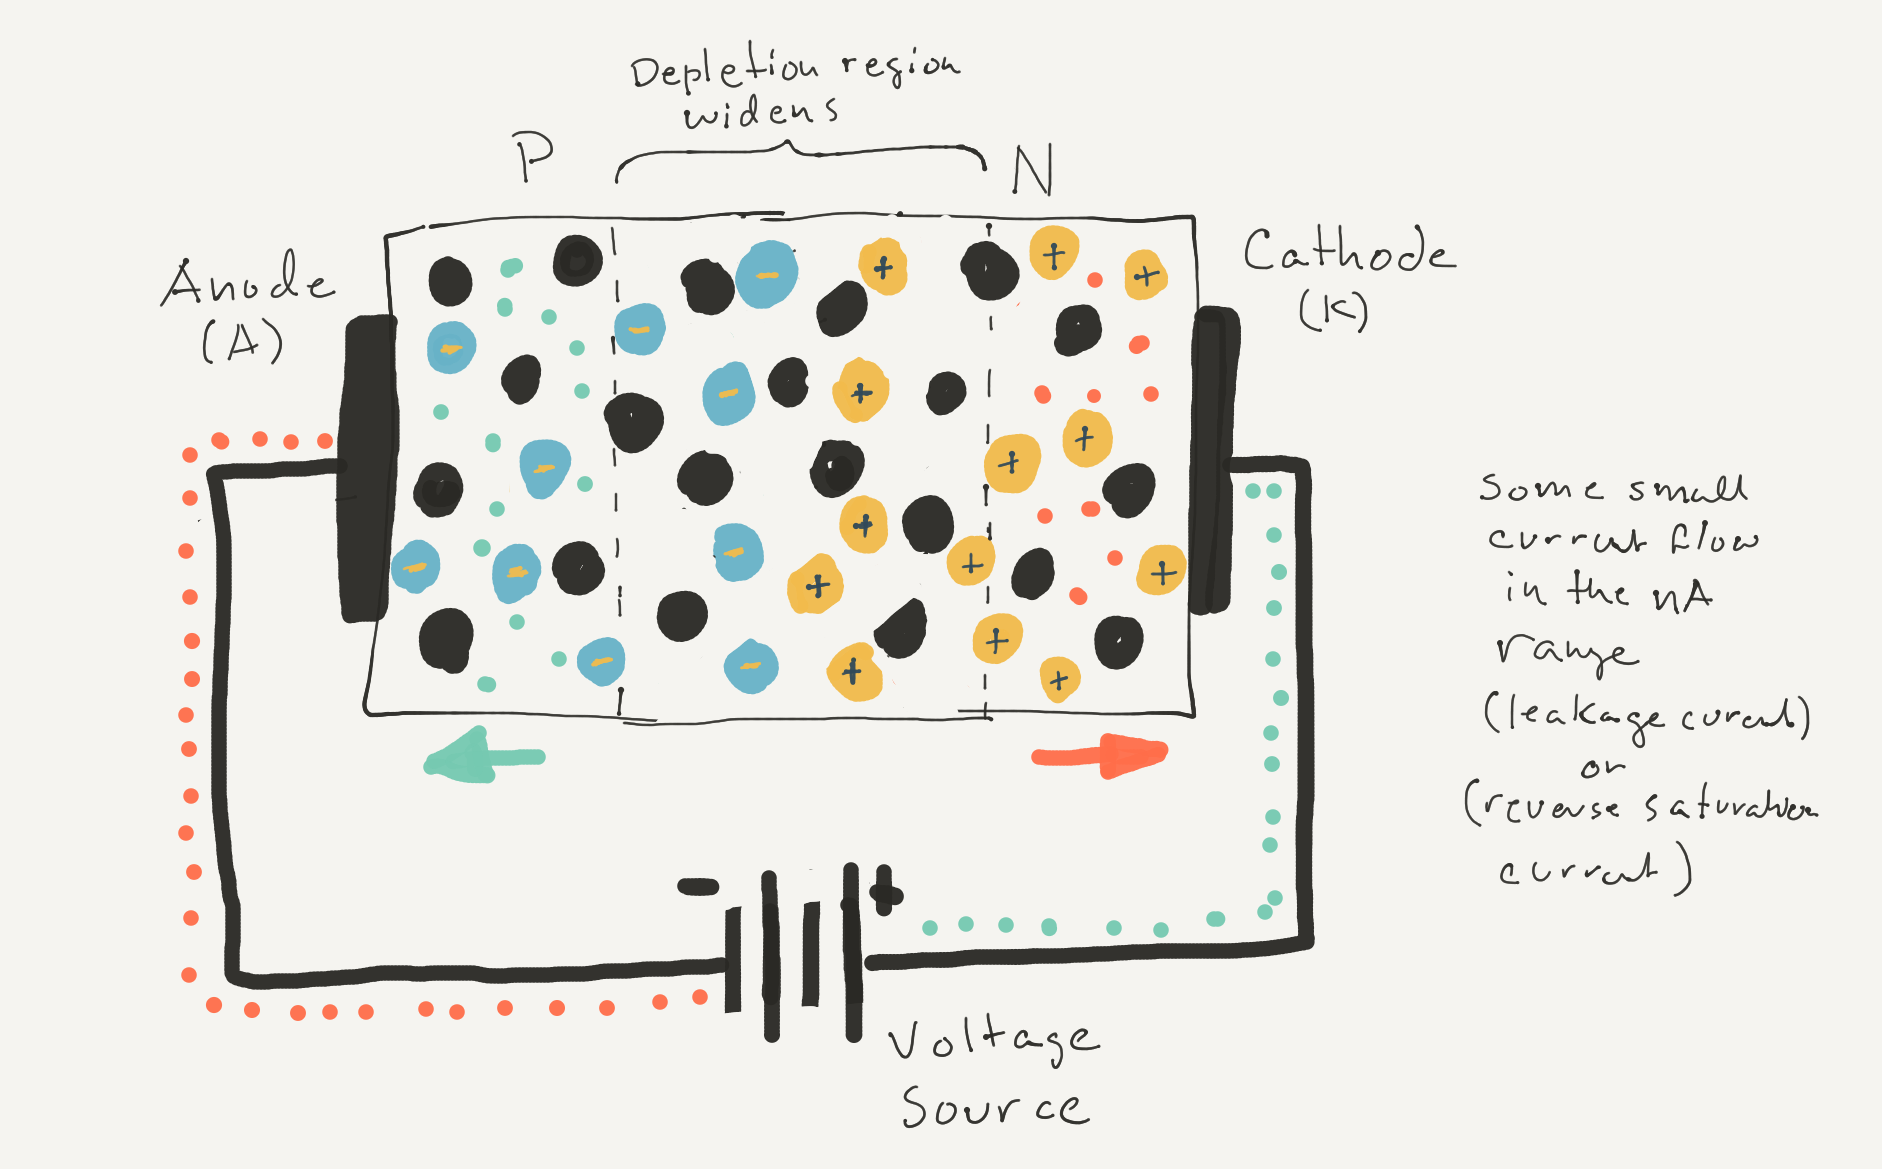 Depletion region
widens
P
N
Anode
(A)
Cathode
(K)
Some small
current flow
in the nA
range
(leakage curent)
or
(reverse saturation
current)
-
+
Voltage
Source